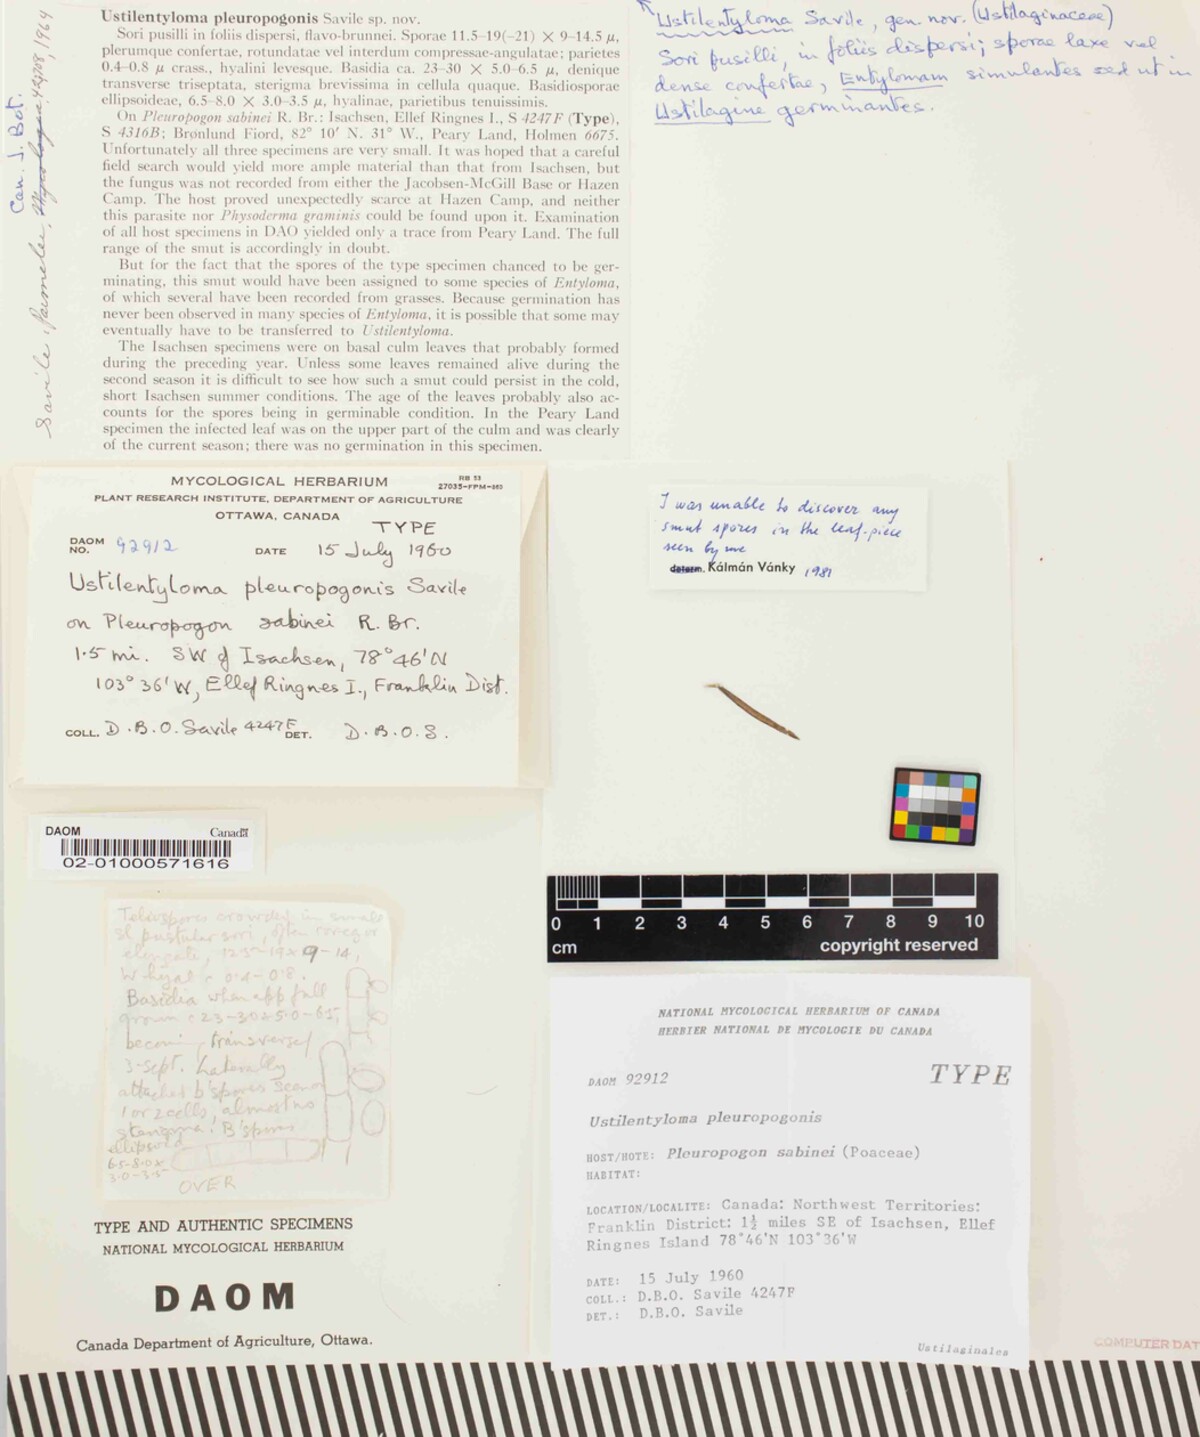 Ustilentyloma pleuropogonis Savile sp. nov.
Sori pusilli in foliis dispersi, flavo-brunnei. Sporae 11.5–19(–21) × 9–14.5 μ,
plerumque confertae, rotundatae vel interdum compressae-angulatae; parietes
0.4–0.8 μ crass., hyalini levesque. Basidia ca. 23–30 × 5.0–6.5 μ, denique
transverse triseptata, sterigma brevissima in cellula quaque. Basidiosporae
ellipsoideae, 6.5–8.0 × 3.0–3.5 μ, hyalinae, parietibus tenuissimis.
On Pleuropogon sabinei R. Br.: Isachsen, Ellef Ringnes I., S 4247F (Type),
S 4316B; Brønlund Fiord, 82° 10′ N. 31° W., Peary Land, Holmen 6675.
Unfortunately all three specimens are very small. It was hoped that a careful
field search would yield more ample material than that from Isachsen, but
the fungus was not recorded from either the Jacobsen-McGill Base or Hazen
Camp. The host proved unexpectedly scarce at Hazen Camp, and neither
this parasite nor Physoderma graminis could be found upon it. Examination
of all host specimens in DAO yielded only a trace from Peary Land. The full
range of the smut is accordingly in doubt.
But for the fact that the spores of the type specimen chanced to be ger-
minating, this smut would have been assigned to some species of Entyloma,
of which several have been recorded from grasses. Because germination has
never been observed in many species of Entyloma, it is possible that some may
eventually have to be transferred to Ustilentyloma.
The Isachsen specimens were on basal culm leaves that probably formed
during the preceding year. Unless some leaves remained alive during the
second season it is difficult to see how such a smut could persist in the cold,
short Isachsen summer conditions. The age of the leaves probably also ac-
counts for the spores being in germinable condition. In the Peary Land
specimen the infected leaf was on the upper part of the culm and was clearly
of the current season; there was no germination in this specimen.
Can. J. Bot.
Savile & Parmelee, 1964
Ustilentyloma Savile, gen. nov. (Ustilaginaceae)
Sori pusilli, in foliis dispersi; sporae laxe vel
dense confertae, Entylomam simulantes sed ut in
Ustilagine germinantes.
MYCOLOGICAL HERBARIUM
RB 53
27035-FPM-860
PLANT RESEARCH INSTITUTE, DEPARTMENT OF AGRICULTURE
OTTAWA, CANADA
TYPE
DAOM NO. 92912 DATE 15 July 1960
Ustilentyloma pleuropogonis Savile
on Pleuropogon sabinei R. Br.
1.5 mi. SW of Isachsen, 78°46'N
103°36'W, Ellef Ringnes I., Franklin Dist.
COLL. D.B.O. Savile 4247F DET. D.B.O.S.
I was unable to discover any
smut spores in the leaf-piece
seen by me
determ. Kálmán Vánky 1981
DAOM Canada
02-01000571616
Teliospores crowded in small
sl pustular sori, often
elongate, 12.5-19 x 9-14,
w hyal 0.4-0.8.
Basidia when app full
grown c 23-30 x 5.0-6.5,
becoming transversely
3-sept. Laterally
attached b'spores seen on
1 or 2 cells, almost no
sterigma. B'spores
ellipsoid
6.5-8.0 x
3.0-3.5
OVER
0 1 2 3 4 5 6 7 8 9 10
cm copyright reserved
TYPE AND AUTHENTIC SPECIMENS
NATIONAL MYCOLOGICAL HERBARIUM
DAOM
Canada Department of Agriculture, Ottawa.
NATIONAL MYCOLOGICAL HERBARIUM OF CANADA
HERBIER NATIONAL DE MYCOLOGIE DU CANADA
DAOM 92912 TYPE
Ustilentyloma pleuropogonis
HOST/HOTE: Pleuropogon sabinei (Poaceae)
HABITAT:
LOCATION/LOCALITE: Canada: Northwest Territories:
Franklin District: 1½ miles SE of Isachsen, Ellef
Ringnes Island 78°46'N 103°36'W
DATE: 15 July 1960
COLL.: D.B.O. Savile 4247F
DET.: D.B.O. Savile
Ustilaginales
COMPUTER DAT